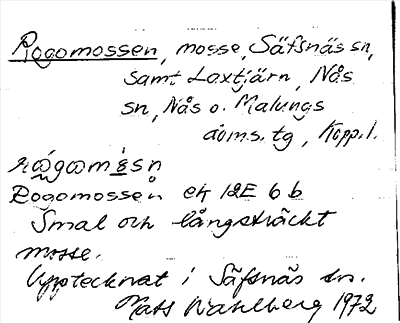 Rogomossen, mosse, Säfsnäs sn,
samt Laxtjärn, Nås
sn, Nås o. Malungs
doms. tg, Kopp. l.
Rogomossen ek 12E 6 b
Smal och långsträckt
mosse.
Upptecknat i Säfsnäs sn.
Mats Wahlberg 1972